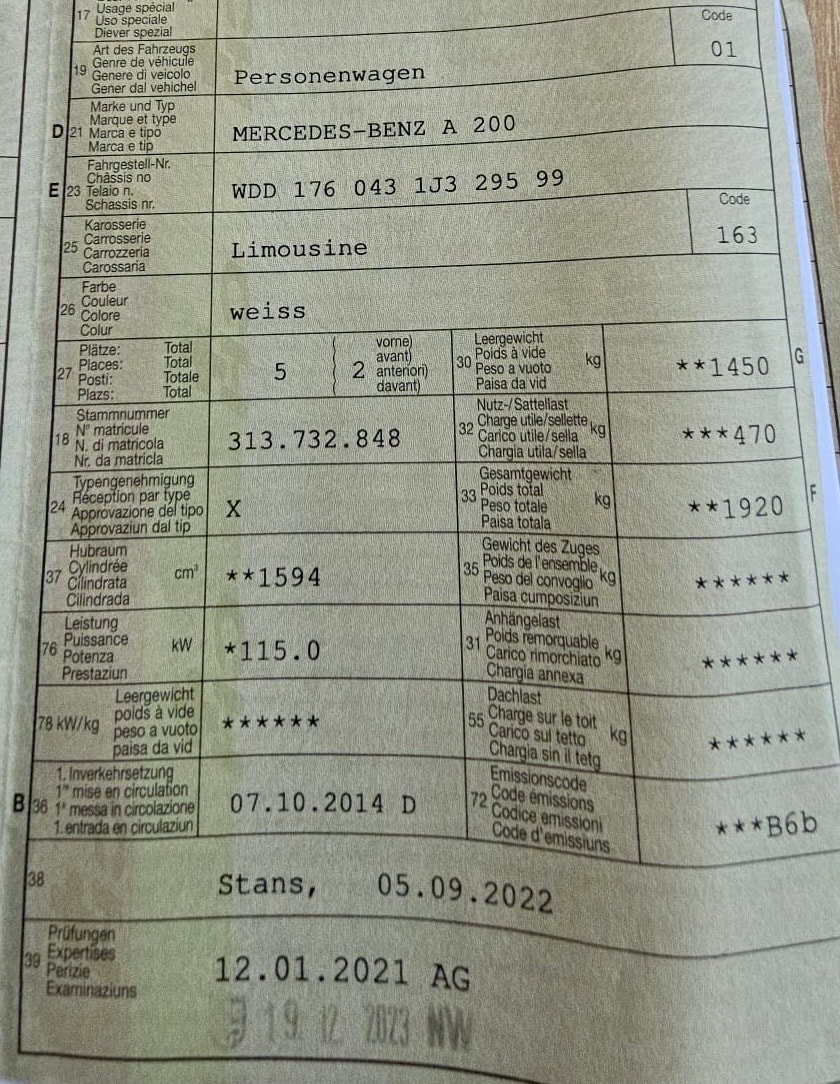 17 Usage spécial
Uso speciale
Diever spezial
Art des Fahrzeugs
Genre de véhicule
19 Genere di veicolo
Gener dal vehichel
Personenwagen
Code
01
Marke und Typ
Marque et type
D 21 Marca e tipo
Marca e tip
MERCEDES-BENZ A 200
Fahrgestell-Nr.
Châssis no
E 23 Telaio n.
Schassis nr.
WDD 176 043 1J3 295 99
Karosserie
Carrosserie
25 Carrozzeria
Carossaria
Limousine
Code
163
Farbe
Couleur
26 Colore
Colur
weiss
Plätze: Total
Places: Total
27 Posti: Totale
Plazs: Total
5
2
vorne)
avant)
anteriori)
davant)
Leergewicht
30 Poids à vide kg
Peso a vuoto
Paisa da vid
**1450
G
Stammnummer
N° matricule
18 N. di matricola
Nr. da matricla
313.732.848
Nutz-/Sattellast
32 Charge utile/sellette kg
Carico utile/sella
Chargia utila/sella
***470
Typengenehmigung
Réception par type
24 Approvazione del tipo
Approvaziun dal tip
X
Gesamtgewicht
33 Poids total kg
Peso totale
Paisa totala
**1920
F
Hubraum
Cylindrée
37 Cilindrata cm³
Cilindrada
**1594
Gewicht des Zuges
35 Poids de l'ensemble
Peso del convoglio kg
Paisa cumposiziun
******
Leistung
76 Puissance kW
Potenza
Prestaziun
*115.0
Anhängelast
31 Poids remorquable
Carico rimorchiato kg
Chargia annexa
******
Leergewicht
78 kW/kg poids à vide
peso a vuoto
paisa da vid
******
Dachlast
55 Charge sur le toit
Carico sul tetto kg
Chargia sin il tetg
******
1. Inverkehrsetzung
1re mise en circulation
B 36 1a messa in circolazione
1. entrada en circulaziun
07.10.2014 D
Emissionscode
72 Code émissions
Codice emissioni
Code d'emissiuns
***B6b
38
Stans, 05.09.2022
Prüfungen
39 Expertises
Perizie
Examinaziuns
12.01.2021 AG
19. 12. 2023 NW